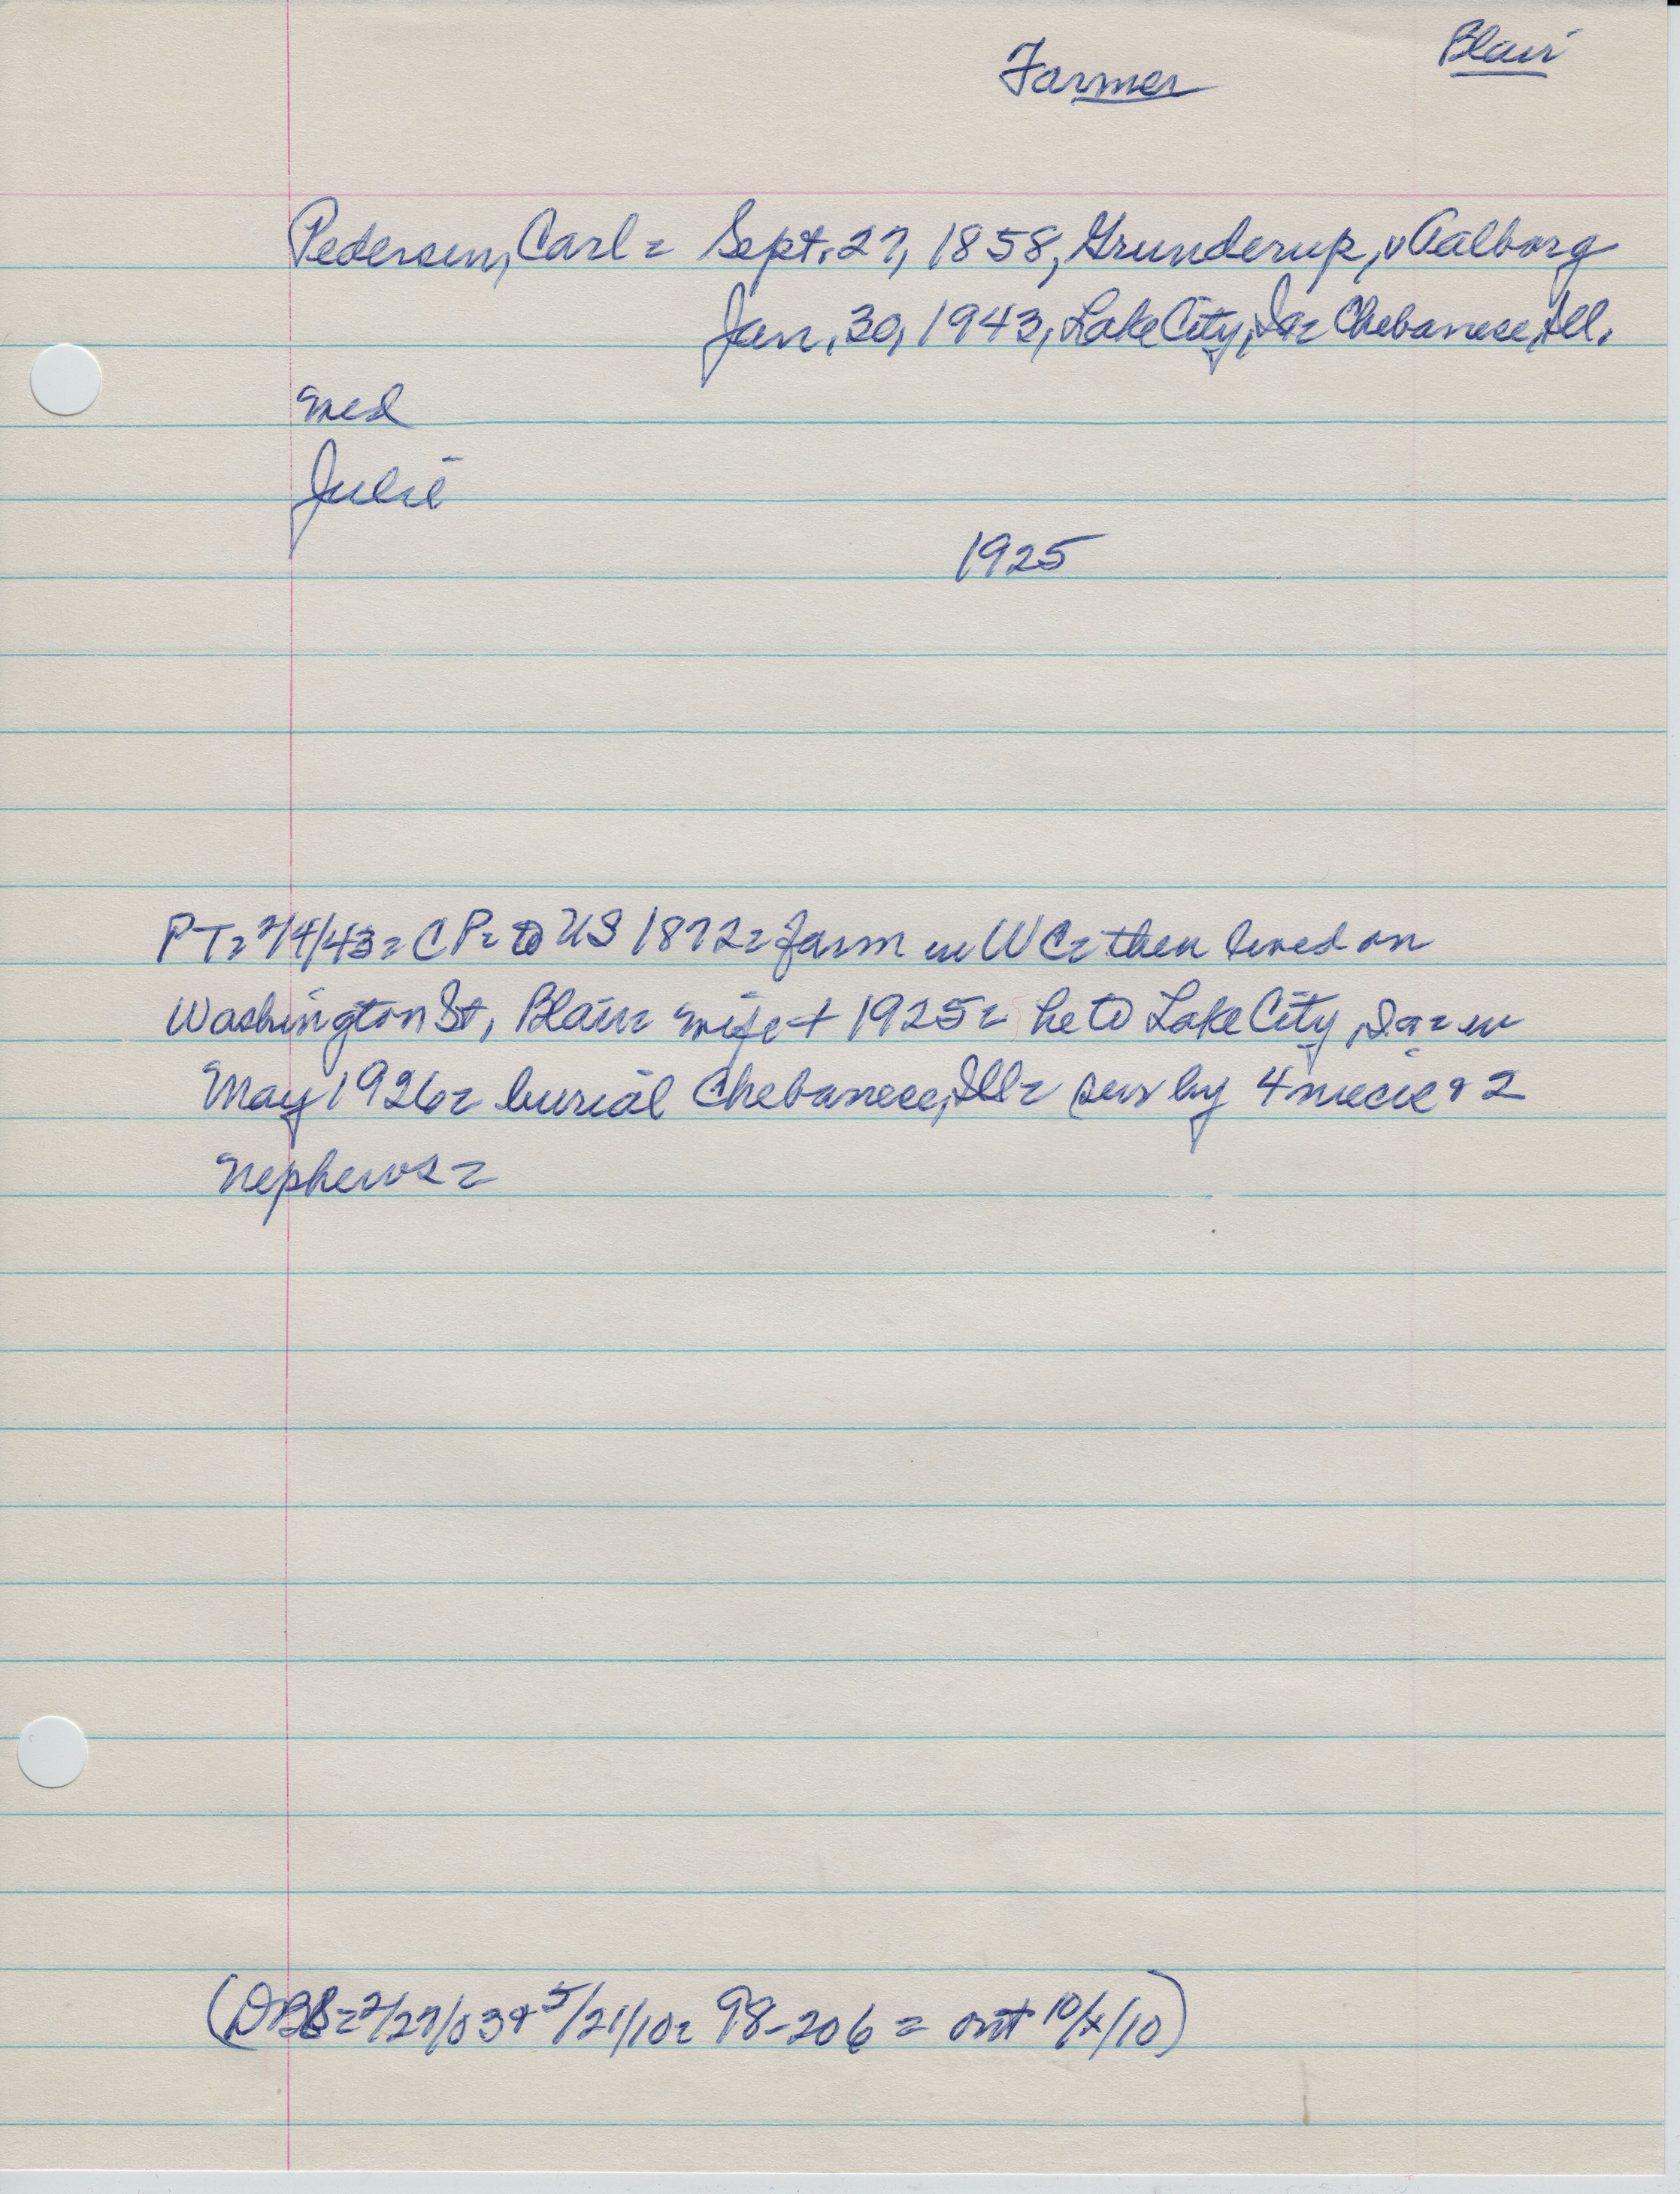 Farmer
Blair
Pedersen, Carl = Sept. 27, 1858, Grunderup, v Aalborg
Jan. 30, 1943, Lake City, Ia = Chebanese, Ill.
med
Julie
1925
PT = 2/4/43 = CP = to US 1872 = farm in WC = then lived on
Washington St, Blair = wife + 1925 = he to Lake City, Ia = in
May 1926 = burial Chebanese, Ill = sur by 4 niece & 2
nephews =
(DBL = 2/27/03 & 5/21/10 = 98-206 = out 10/x/10)